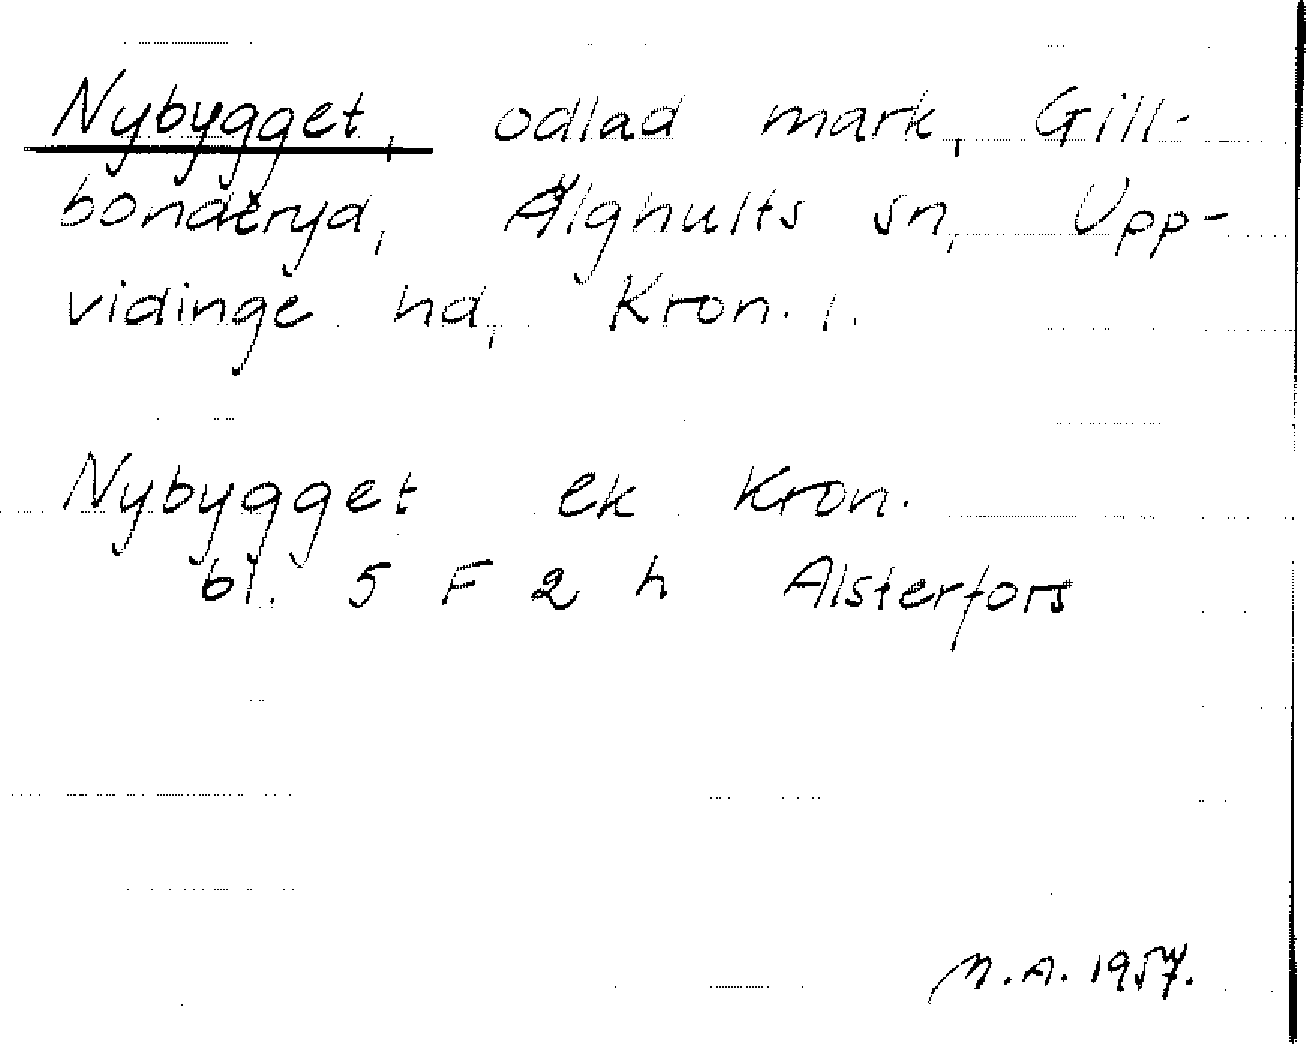 Nybygget, odlad mark, Gill-
bonderyd, Älghults sn, Upp-
vidinge hd, Kron. l.
Nybygget ek Kron.
bl. 5 F 2 h Alsterfors
M.A. 1957.